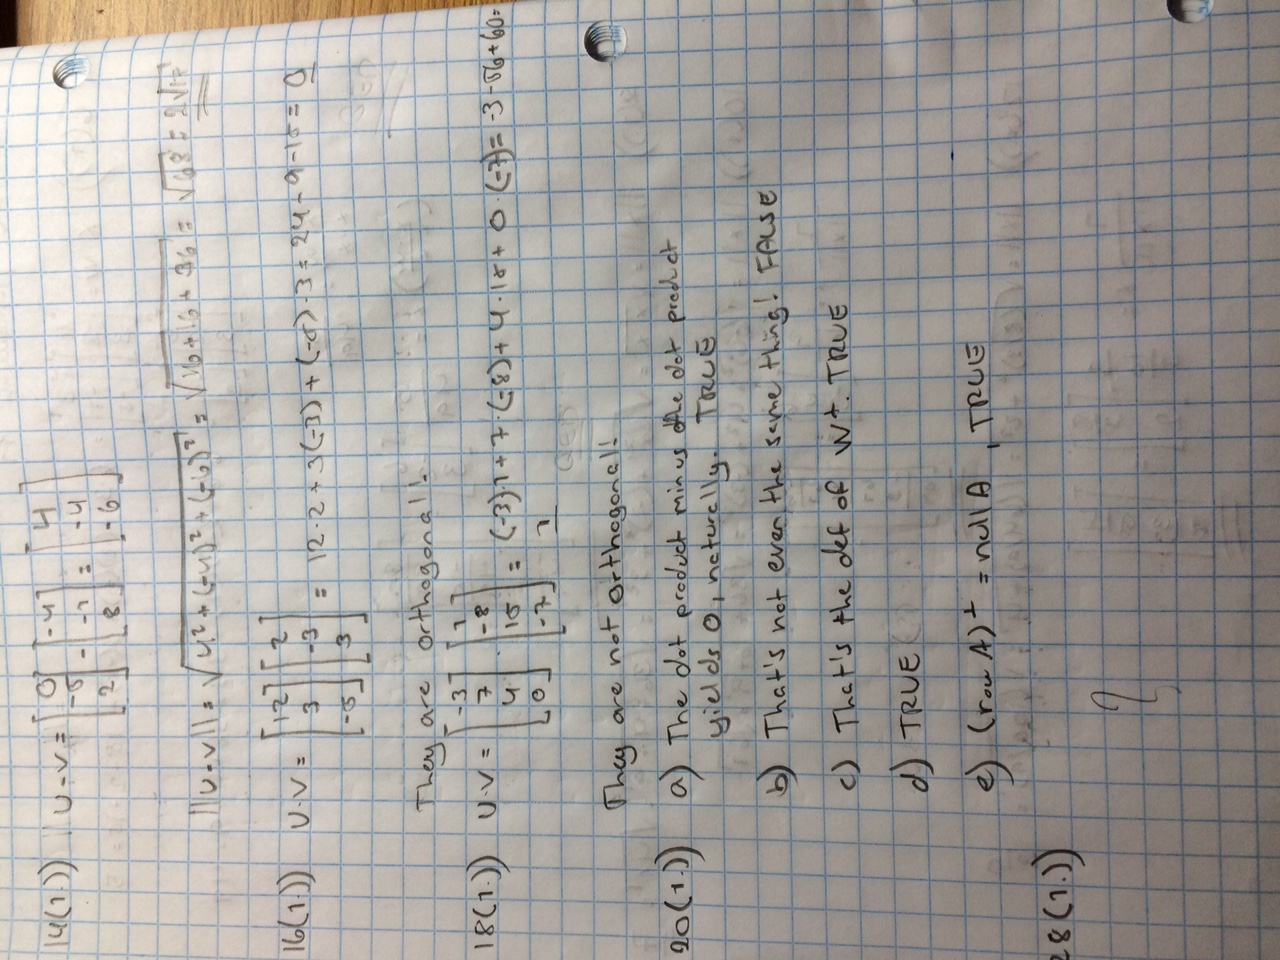 14(1.)) U-V = [0 -5 2] - [-4 -1 8] = [4 -4 -6]
||U-V|| = √4² + (-4)² + (-6)² = √16+16+36 = √68 = 2√17
16(1.)) U·V = [12 3 -5] [2 -3 3] = 12·2 + 3(-3) + (-5)·3 = 24-9-15 = 0
They are orthogonal!
18(1.)) U·V = [-3 7 4 0] · [1 -8 15 -7] = (-3)·1 + 7·(-8) + 4·15 + 0·(-7) = -3-56+60=
1
They are not orthogonal!
20(1.)) a) The dot product minus the dot product
yields 0, naturally. TRUE
b) That's not even the same thing! FALSE
c) That's the def of W⊥. TRUE
d) TRUE
e) (row A)⊥ = null A, TRUE
28(1.))